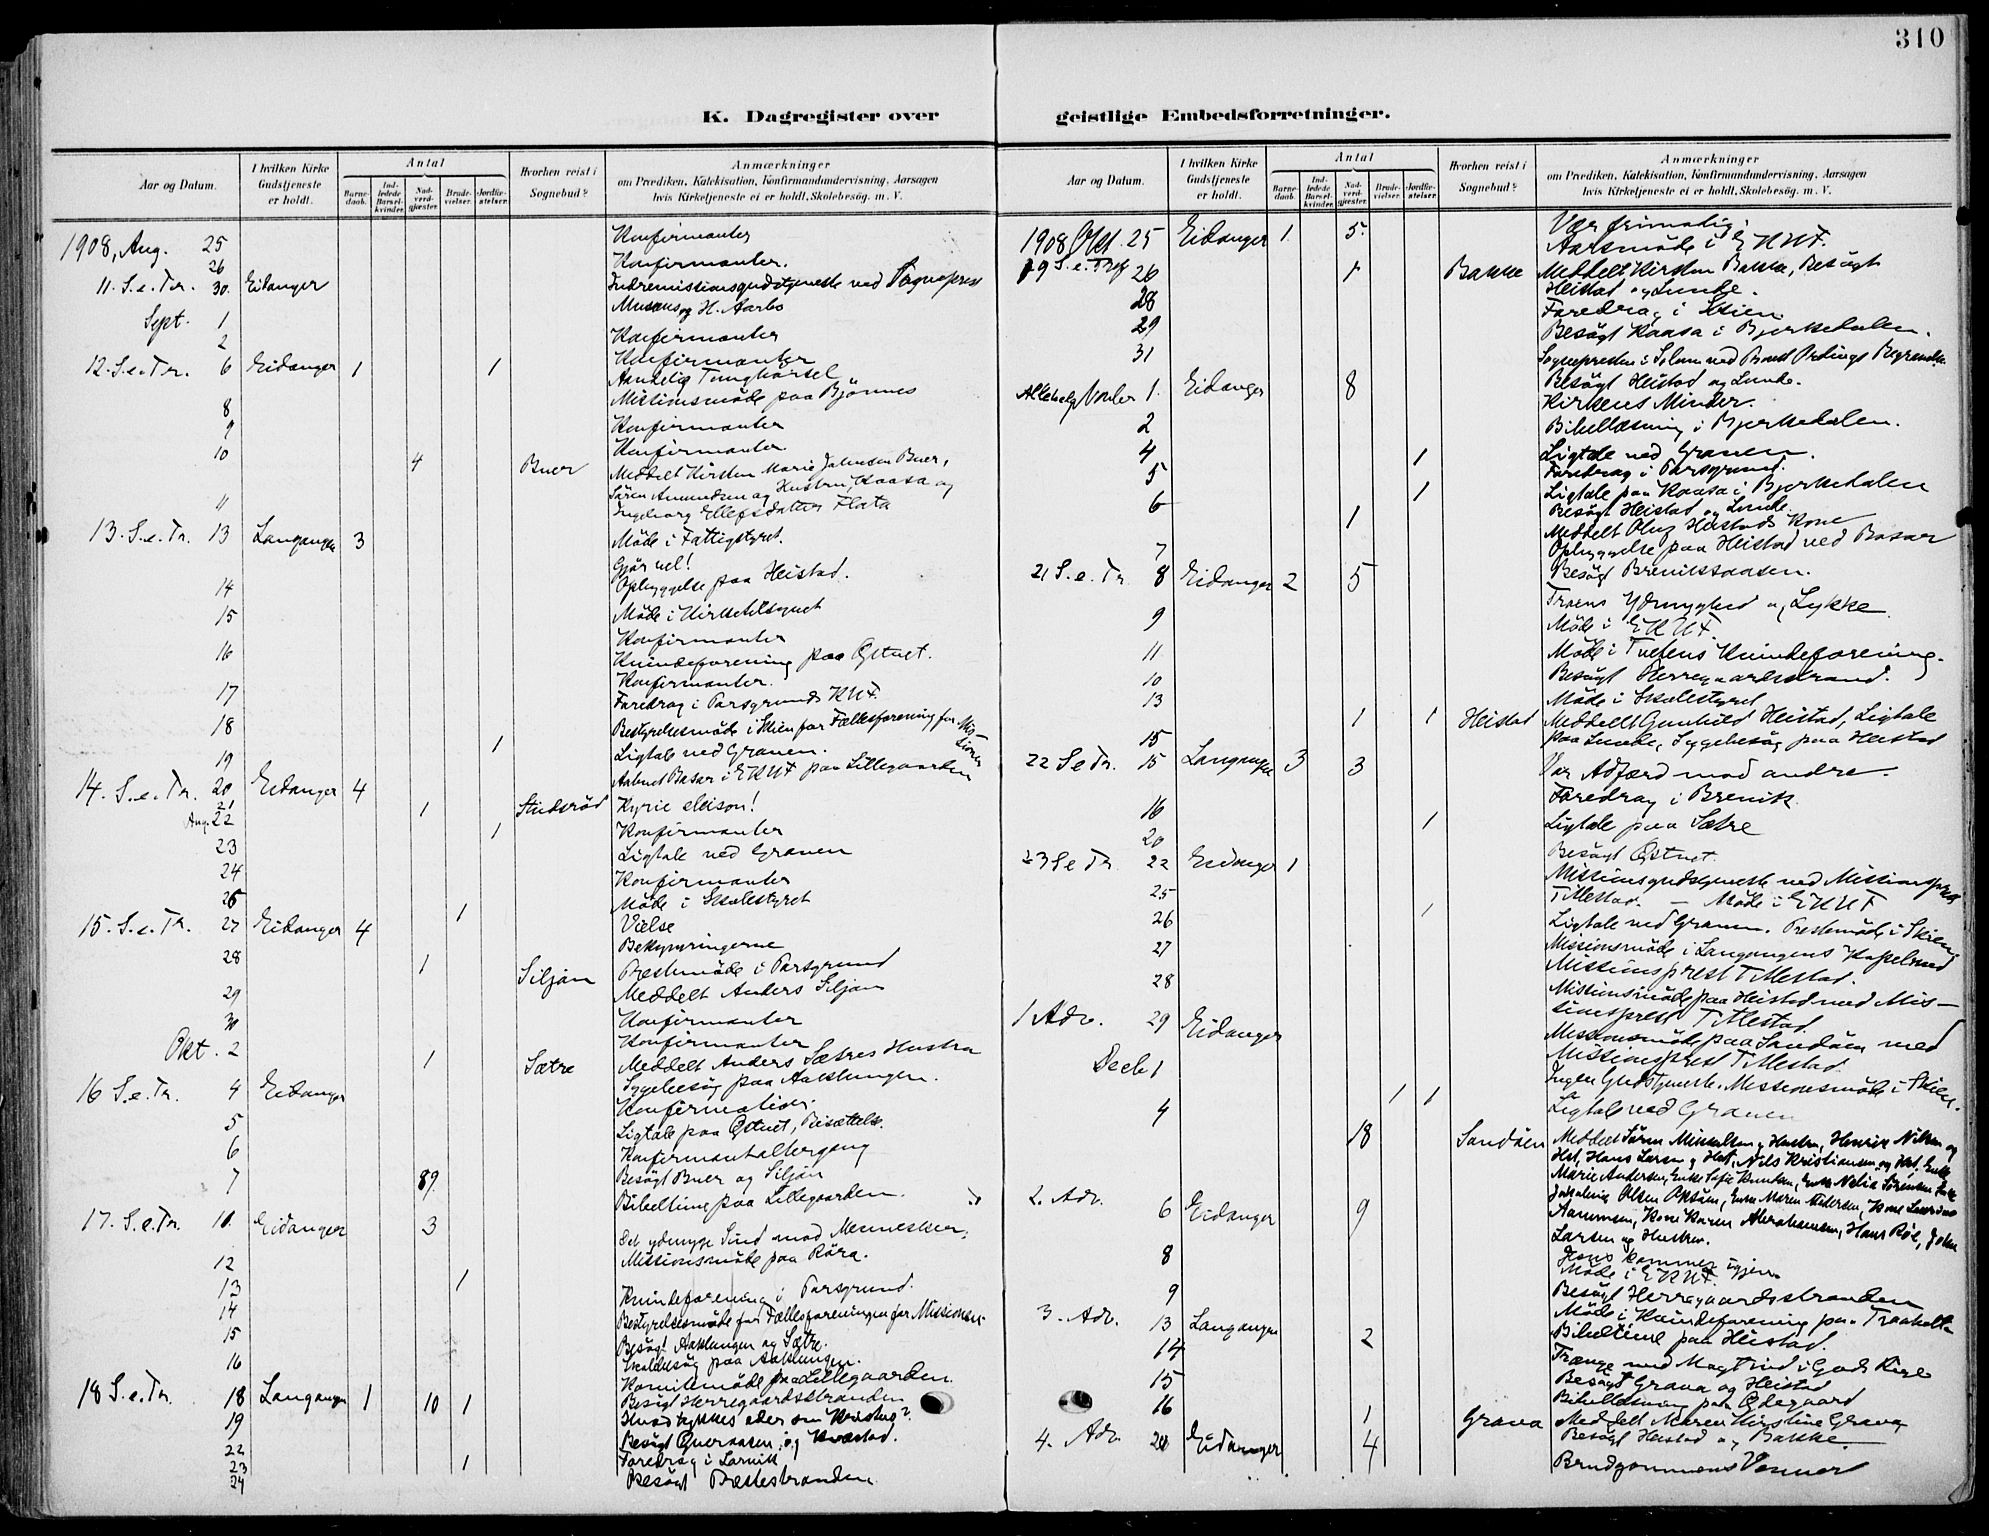 310
K. Dagregister over
Aar og Datum.
I hvilken Kirke Gudstjeneste er holdt.
Antal
Barnedaab.
Indledede Barselkvinder.
Nadverdgjæster.
Brudevielser.
Jordfæstelser.
Hvorhen reist i Sognebud?
Anmærkninger
om Prædiken, Katekisation, Konfirmandundervisning, Aarsagen
hvis Kirketjeneste ei er holdt, Skolebesøg. m. V.
1908, Aug. 25 Konfirmanter
26 Konfirmanter.
11. S. e. Tr. 30. Eidanger Indremissionsgudstjeneste ved Sogneprest
H. Aarbo
Sept. 1 Konfirmanter
2 Konfirmanter
12. S. e. Tr. 6 Eidanger 1 1 Aandelig Tunghørsel
Missionsmøde paa Bjønnes
8 Konfirmanter
9 Konfirmanter
10 4 Buer Meddelt Kirsten Marie Johnsen Buer,
Søren Amundsen og Hustru, Kaasa og
11 Ingeborg Ellefsdatter Flata
13. S. e. Tr. 13 Langangen 3 Møde i Fattigstyret.
Gjør vel!
14 Opbyggelse paa Heistad.
15 Møde i Kirketilsynet
Konfirmanter
16 Kvindeforening paa Østvet.
Konfirmanter.
17 Foredrag i Porsgrunds KUF.
18 Bestyrelsesmøde i Skien for Fællesforening for Missionen
19 1 Ligtale ved Graven.
Aabnet Basar i EKUF paa Lillegaarden
14. S. e. Tr. 20 Eidanger 4 Kyrie eleison!
21 1 Stridsrød
Aug. 22 1 Konfirmanter
23 Ligtale ved Graven
24 Konfirmanter
26 1 Møde i Skolestyret
Vielse
15. S. e. Tr. 27 Eidanger 4 Bekymringerne
28 1 Siljan Prestemøde i Porsgrund
Meddelt Anders Siljan
29 Konfirmanter
30 Konfirmanter
Okt. 2 1 Sætre Meddelt Anders Sætres Hustru
Sygebesøg paa Aaklungen.
16 S. e. Tr. 4 Eidanger Konfirmation.
5 Ligtale paa Østvet, Bisættelse.
6 Konfirmantaltergang
7 89. Besøgt Buer og Siljan
Bibeltime paa Lillegaarden.
17. S. e. Tr. 11. Eidanger 3 Det ydmyge Sind mod Mennesker.
12 Missionsmøde paa Røra.
13 1 Kvindeforening i Porsgrund.
14 Bestyrelsesmøde for Fællesforeningen for Missionen
15 Besøgt Aaklungen og Sætre.
16 Skolebesøg paa Aaklungen.
Komitemøde paa Lillegaarden.
18 S. e. Tr. 18 Langangen 1 10 1 Besøgt Herregaardsstranden
19 Hvad tykkes eder om Kristus?
22 Besøgt og
23 1 Foredrag i Larvik
24 Besøgt Prestestranden
geistlige Embedsforretninger.
Aar og Datum.
I hvilken Kirke Gudstjeneste er holdt.
Antal
Barnedaab.
Indledede Barselkvinder.
Nadverdgjæster.
Brudevielser.
Jordfæstelser.
Hvorhen reist i Sognebud?
Anmærkninger
om Prædiken, Katekisation, Konfirmandundervisning, Aarsagen
hvis Kirketjeneste ei er holdt, Skolebesøg. m. V.
1908 Okt. 25 Eidanger 1. 5. Vær frimodig!
Aarsmøde i EKUF.
19 S. e. Tr. 26 1 Bakke Meddelt Kirsten Bakke, Besøgt
Heistad og Lunde.
28 Foredrag i Skien
29 Besøgt Kaasa i Bjerkedalen.
31 Sognepresten i Solum ved
Besøgt Heistad og Lunde.
Allehelg Novbr 1. Eidanger 8 Kirkens Minder.
2 Bibellæsning i Bjerkedalen.
4 1 Ligtale ved Graven.
5 Foredrag i Porsgrund.
6 1 Ligtale paa Kaasa i Bjerkedalen
Besøgt Heistad og Lunde.
1 Meddelt Oluf Heistads Kone
7 Opbyggelse paa Heistad ved Basar
Besøgt Breviksaasen.
21 S. e. Tr. 8 Eidanger 2 5 Troens Ydmyghed og Lykke
9 Møde i EKUF.
11 Møde i Kvindeforening.
10 Besøgt Herregaardsstrand.
13 Møde i Skolestyret
1 1 Heistad Meddelt Gunhild Heistad, Ligtale
15 paa Lunde, Sygebesøg paa Heistad
22 S e Tr. 15 Langangen 3 3 Vor Adfærd mod andre.
16 Foredrag i Brevik
20 1 Ligtale paa Sætre
Besøgt Østvet.
23 S e Tr. 22 Eidanger 1 Missionsgudstjeneste ved Missionsprest
25 Tillestad. — Møde i EKUF
26 1 Ligtale ved Graven. Prestemøde i Skien
27 Missionsmøde i Langangens Kapel med
Missionsprest Tillestad.
28 Missionsmøde paa Heistad med Mis-
sionsprest Tillestad
1 Adv. 29 Eidanger Missionsmøde paa Sandøen med
Missionsprest Tillestad.
Decb 1 Ingen Gudstjeneste. Missionsmøde i Skien.
4 1 1 Ligtale ved Graven
18 Sandøen Meddelt Søren Mikkelsen og Hustru, Henrik Nilsen og
Hst, Hans Larsen og Hst, Nils Kristiansen og Hst, Enke
Marie Andersen, Enke Sofie Knudsen,
Olsen Enke Maren Andersen, Kone
Kone Karen Abrahamsen, Hans Røe, John
Larsen og Hustru.
2. Adv. 6 Eidanger 9 Han kommer igjen
8 Møde i EKUF.
9 Besøgt Herregaardsstranden
Møde i Kvindeforening paa
3. Adv. 13 Langangen 2 Bibeltime paa Heistad.
14 Trænge med Magt ind i Guds Rige
15 Besøgt Grava og Heistad
16 Bibellæsning paa Ødegaard
1 Grava Meddelt Maren Kirstine Grava
Besøgt Heistad og Bakke.
4. Adv. 20 Eidanger 4 Brudgommens Venner